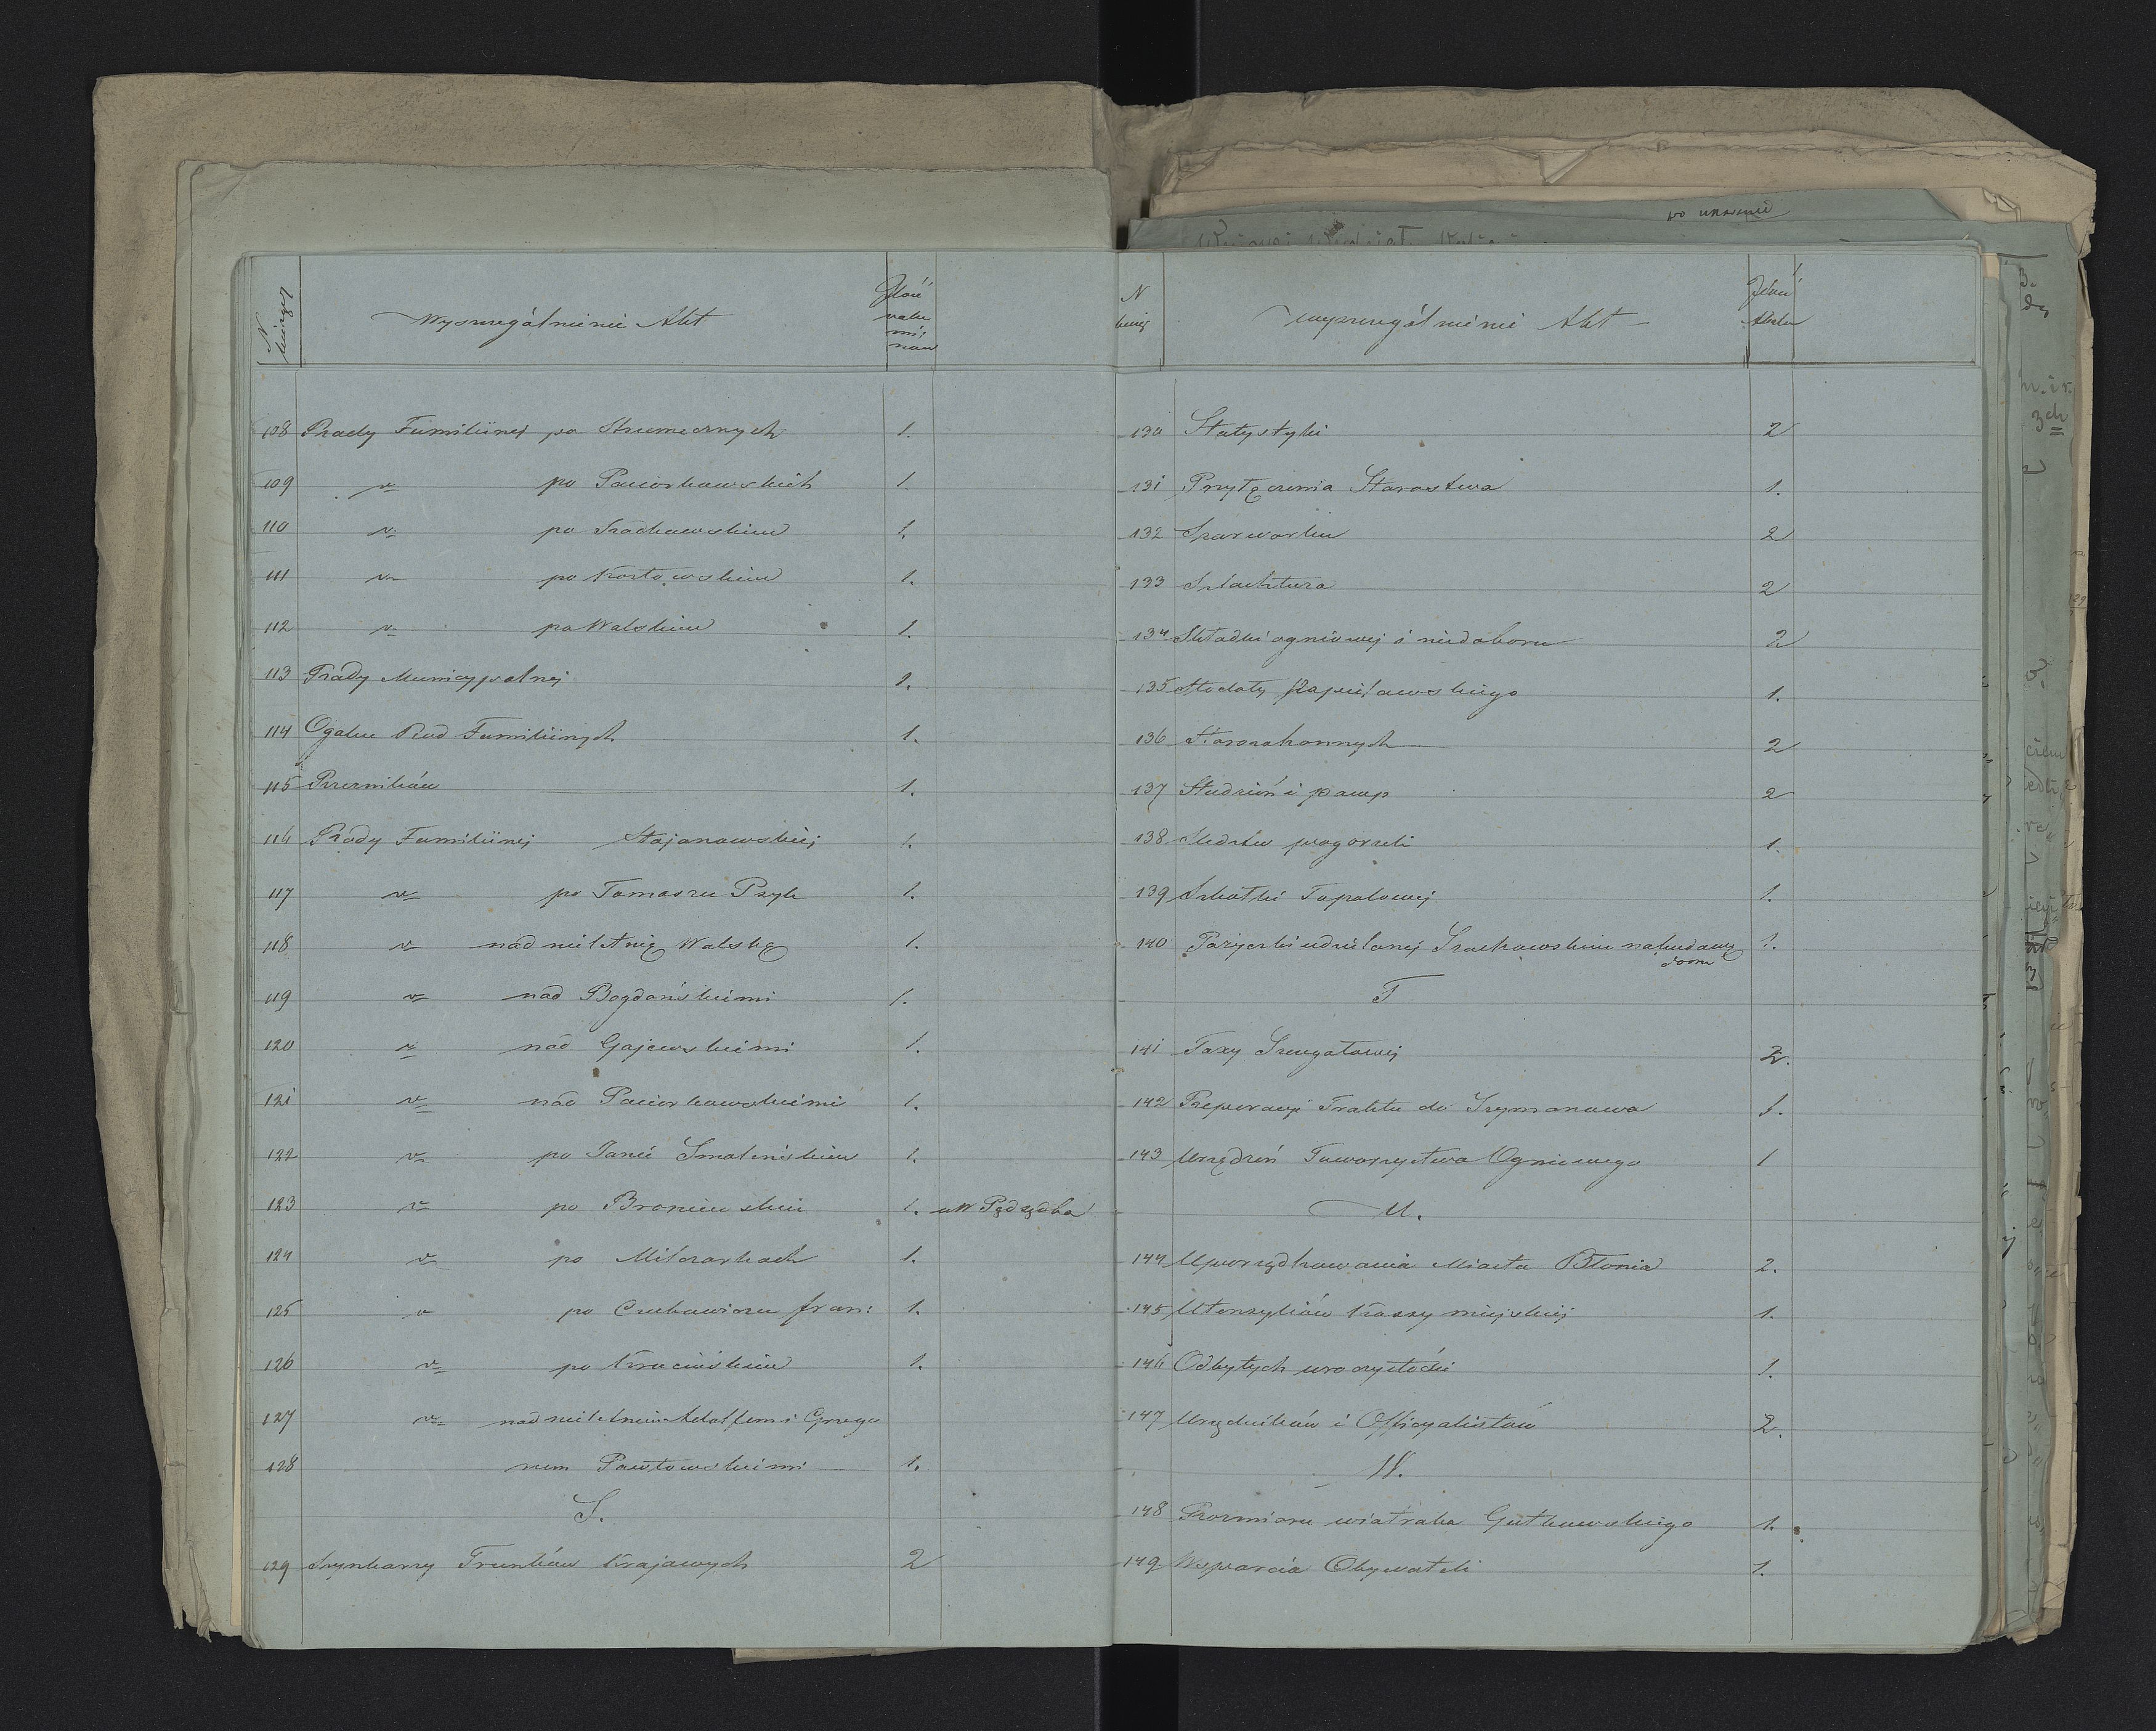 N bieżący
Wyszczególnienie Akt
Ilość
volu
mi,
now
108 Rady Familiinej po Strumecznych 1.
109 v po Paciorkowskich 1.
110 v po Srachowskim 1.
111 v po Kozłowskim 1.
112 v po Walskim 1.
113 Rady Municypalnej 1.
114 Ogółu Rad Familiinych 1.
115 Rzezników 1.
116 Rady Familiinej Stojanowskiej 1.
117 v po Tomaszu Pszyk 1.
118 v nad nieletnią Walską 1.
119 v nad Bogdańskiemi 1.
120 v nad Gajewskiemi 1.
121 v nad Paciorkowskiemi 1.
122 v po Janie Smoleńskim 1.
123 v po Broniewskim 1. u W Pądządka
124 v po Milczarkach 1.
125 v po Czubowiczu fran: 1.
126 v po Krucińskim 1.
127 v nad nieletniem Adolfem i Grzego
128 rzem Pawłowskiemi 1.
S.
129 Szynkarzy Trunków Krajowych 2
N
bieżą
Wyszczególnienie Akt
Ilość
130 Statystyki 2
131 Przyłączenia Starostwa 1.
132 Szarwarku 2
133 Szlachtuza 2
134 Składki ogniowej i niedoboru 2
135 Stodoły 1.
136 Starozakonnych 2
137 Studzień i pomp 2
138 Śledztw pogorzeli 1.
139 Szkółki Topolowej 1.
140 Pożyczki udzielonej Srachowskiemu na budowę 1.
domu
T
141 Taxy 2.
142 Reperacyi Traktu do Szymanowa 1.
143 Urządzeń Towarzystwa Ogniowego 1
U.
144 Uporządkowania Miasta Błonia 2.
145 Utensyliów Kassy miejskiej 1.
146 Odbytych uroczystości 1.
147 Urzędników i Officyalistów 2.
W.
148 Rozmiaru wiatraka Gutkowskiego 1.
149. Wsparcia Obywateli 1.